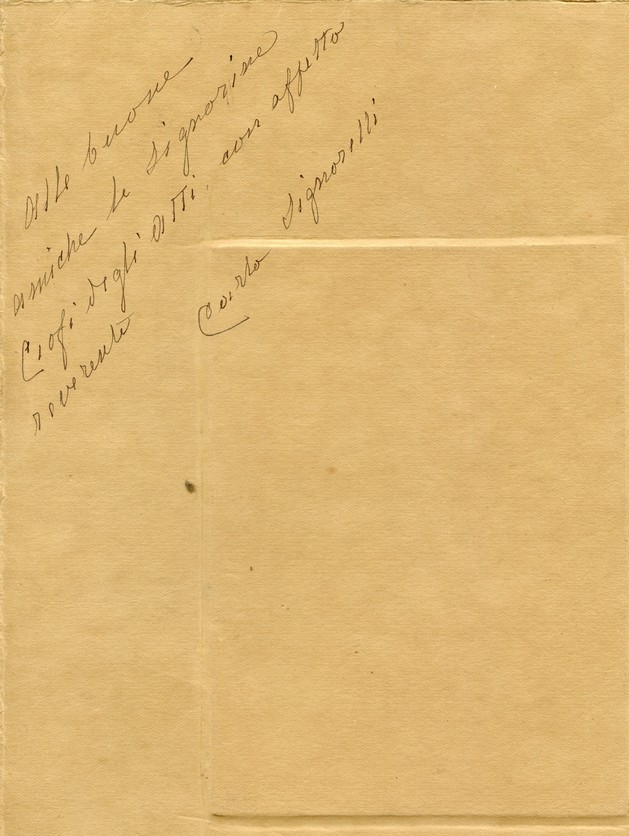 alle buone
amiche le signorine
Ciofi degli Atti, con affetto
reverente
Carlo Signorelli